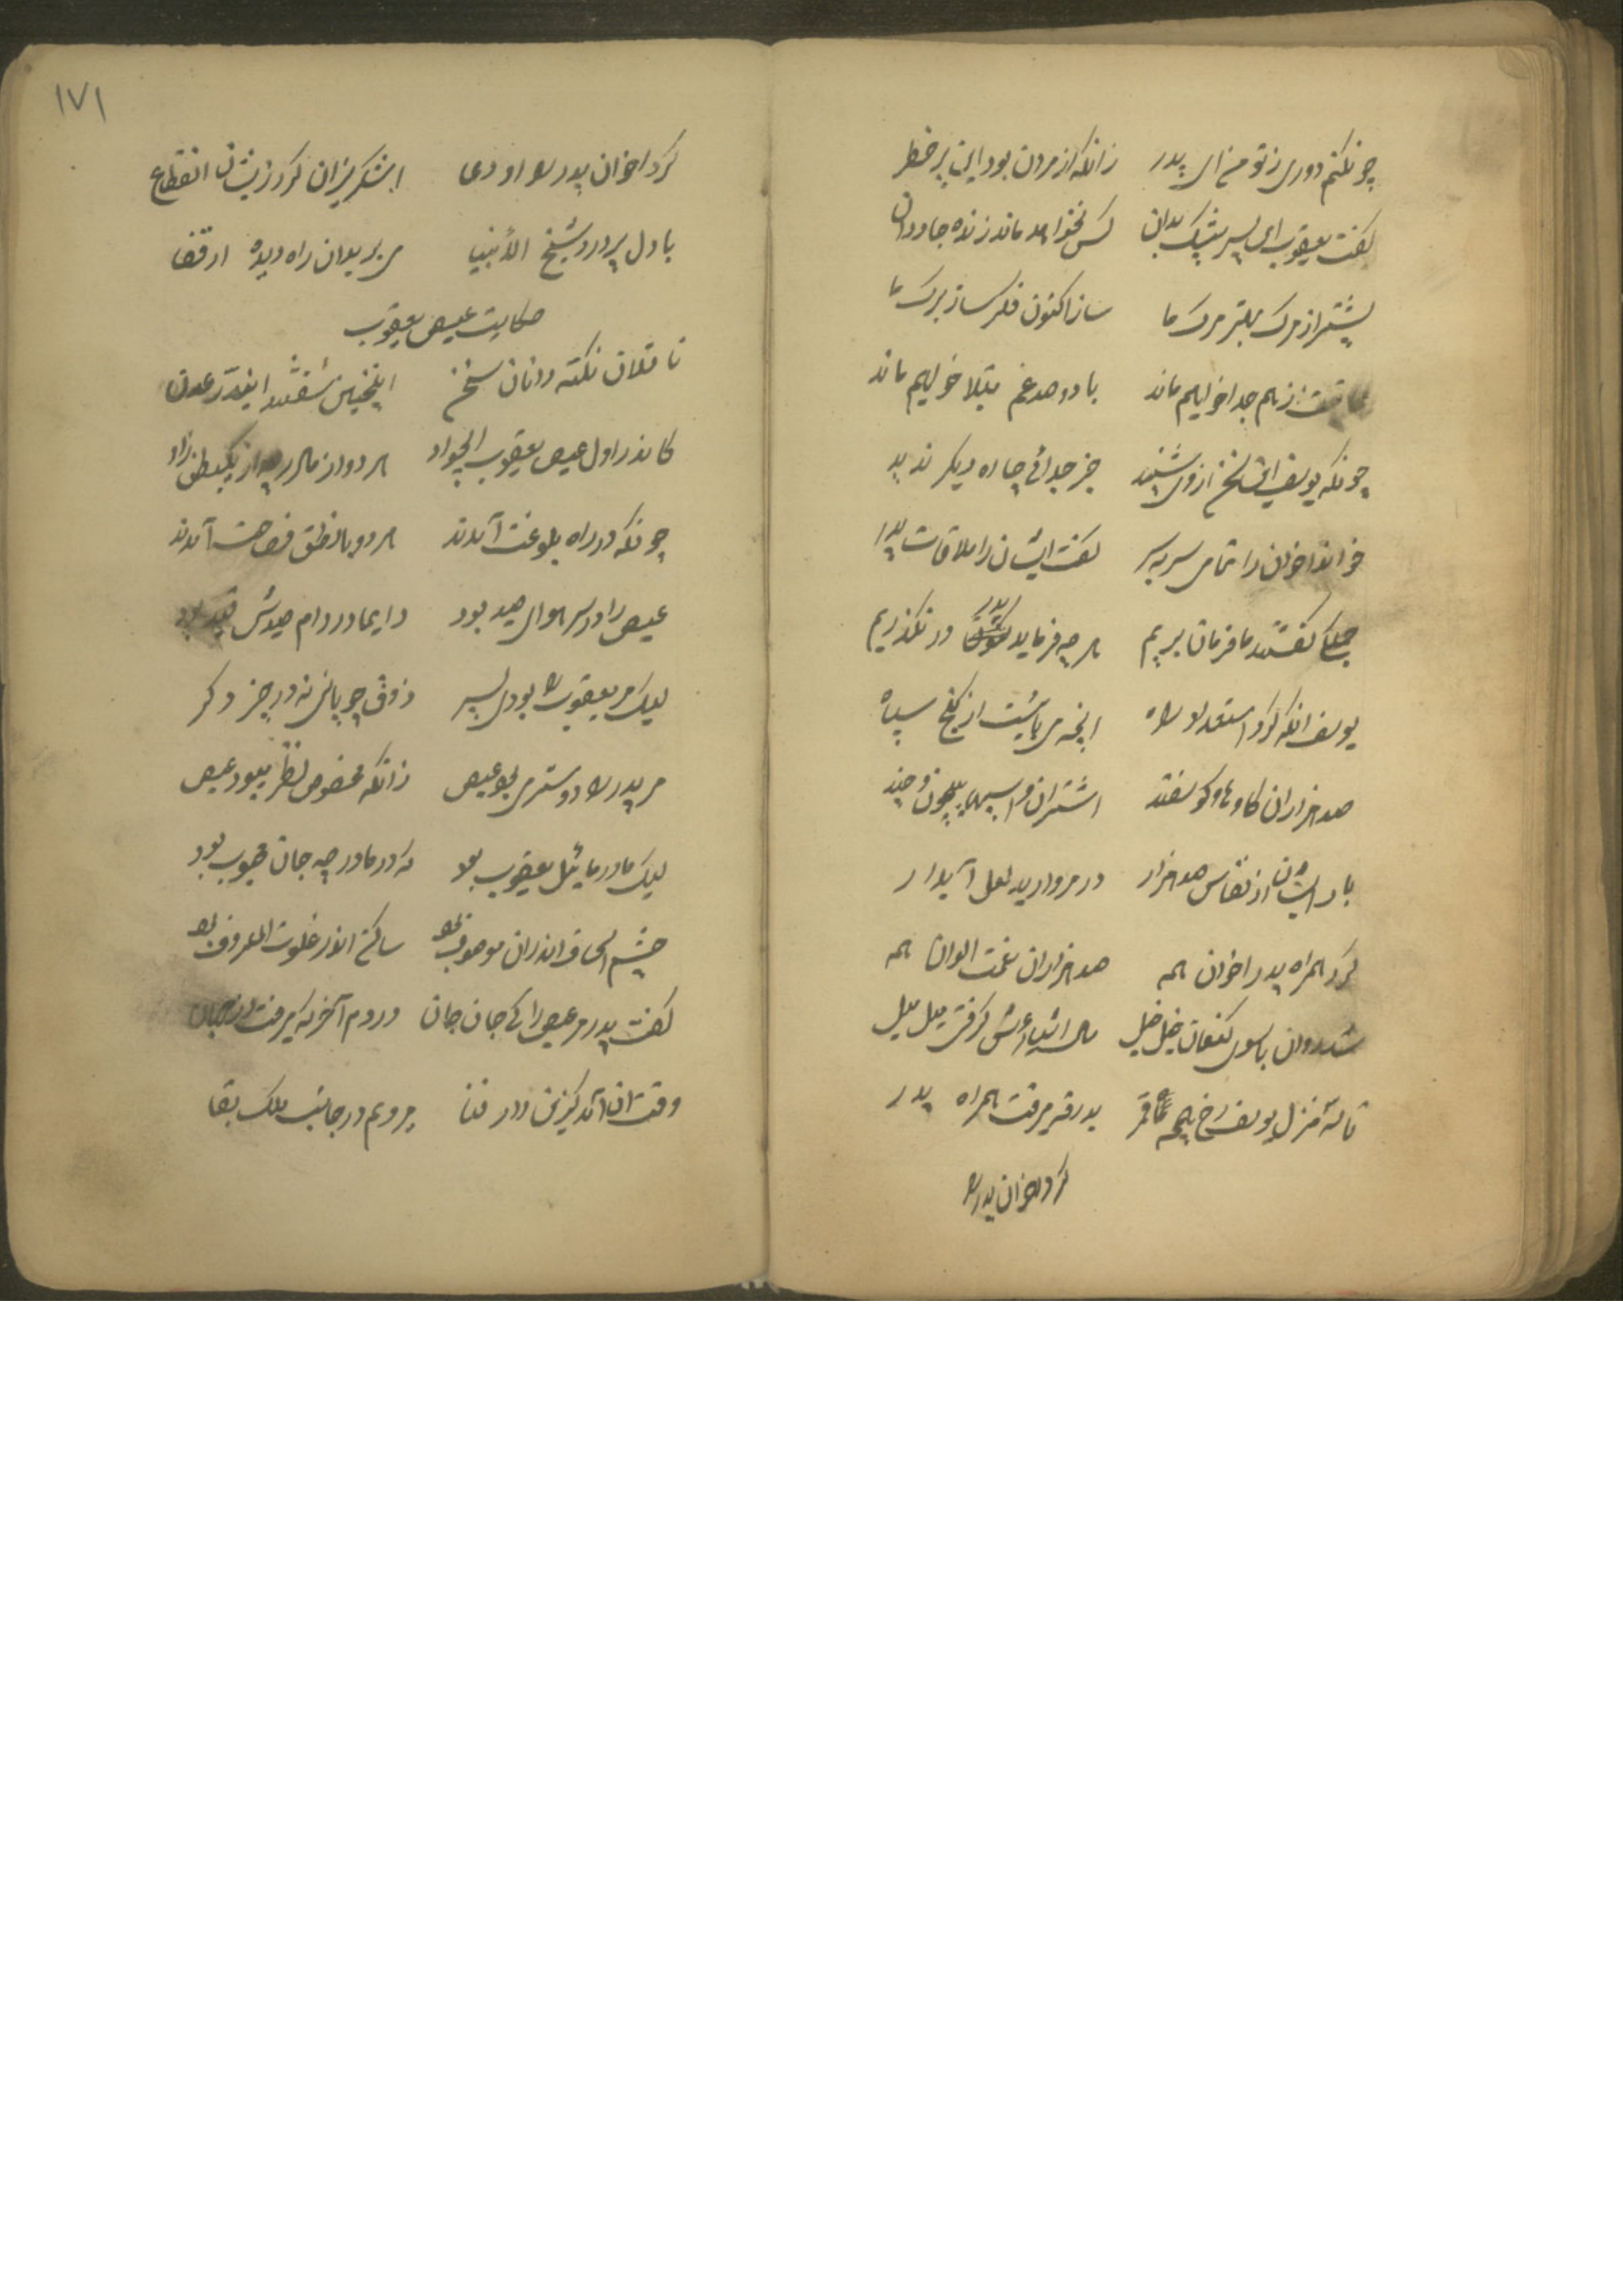 چونکنم دوری ز تو من ای پدر زانکه از مردن بود این پر خطر
گفت یعقوب ای پسر بیشک بدان کس نخواهد ماند زنده جاودان
پیشتر از مرک بهتر مرک ما ساز اکنون فکر ساز برک ما
عاقبت از هم جدا خواهیم ماند با دو صد غم مبتلا خواهیم ماند
چونکه یوسف این سخن از وی شنید جز جدائی چاره دیکر ندید
خواند اخوان را تمامی سر بسر گفت ایشان را ملاقات پدر
جملگی گفتند ما فرمان بریم هر چه فرماید پدر در نگذریم
یوسف انکه کرد استعداد راه انچه می بایست از گنج سپاه
صد هزاران گاو و گوسفند اشتران و اسبهای بیچون و چند
بار ایشان از نفایس صد هزار در مروارید لعل آبدار
کرد همراه پدر اخوان همه صد هزاران نعمت الوان همه
شد روان با سوی کنعان خیل خیل میل میل
تا سه منزل یوسف رخ همچو قمر بدرقه میرفت همراه پدر
کرد اخوان پدر را
۱۷۱
کرد اخوان پدر را او وداع اشک ریزان کرد زیشان انقطاع
با دل پر درد شیخ الأنبیا می برید ان راه دیده از قفا
حکایت عیص یعقوب
ناقلان نکته دانان سخن اینچنین سفتند این در عدن
کاندر اول عیص یعقوب الجواد هر دو از مادر به از یکبطن زاد
چونکه در راه بلوغت آمدند هر دو با نطق فصاحت آمدند
عیص را در سر هوای صید بود دایما در دام صیدش قید بود
لیک مر یعقوب را بودی بسر ذوق چوپانی نه در چیز دکر
مر پدر را دوستر می بود عیص زانکه مخصوص نظر میبود عیص
لیک مادر مایل یعقوب بود که در مادر چه جان محبوب بود
چشم اسحاق اندران موصوف بود ساکن اندر خلوت المعروف بود
گفت پدر مر عیص را کی جان جان در دم آخر که میرفت از جهان
وقت ان آمد کزین دار فنا میروم در جانب ملک بقا